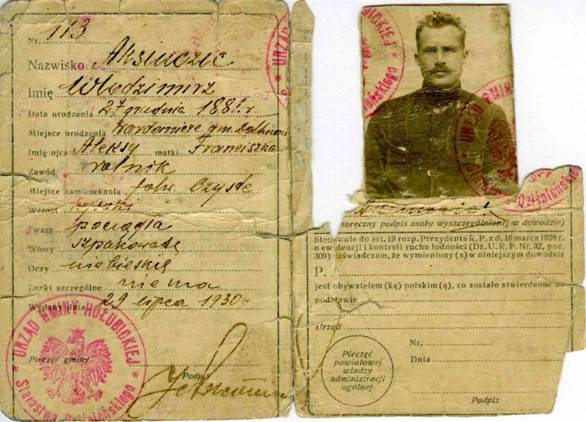 Nr. 113
Nazwisko Aksiuczic
Imię Włodzimirz
Data urodzenia 27 grudnia 1881 r
Miejsce urodzenia
Imię ojca Aleksy matki Franciszka
Zawód rolnik
Miejsce zamieszkania folw. Czyste
Wzrost
Twarz pociągła
Włosy szpakowate
Oczy niebieskie
Znaki szczególne niema
Wydany dnia 29 lipca 1930 r
Pieczęć gminy
Podpis
URZĄD GMINY HOŁUBICKIEJ
Starostwa Dziśnieńskiego
(własnoręczny podpis osoby wyszczególnionej w dowodzie)
Stosownie do art. 19 rozp. Prezydenta R. P. z d. 16 marca 1928 r.
o ewidencji i kontroli ruchu ludności (Dz. U. R. P. Nr. 32, poz.
309) zaświadczam, że wymieniony (a) w niniejszym dowodzie
P.
jest obywatelem (ką) polskim (ą), co zostało stwierdzone na
podstawie
Urząd
Nr.
Dnia
Pieczęć
powiatowej
władzy
administracji
ogólnej
Podpis